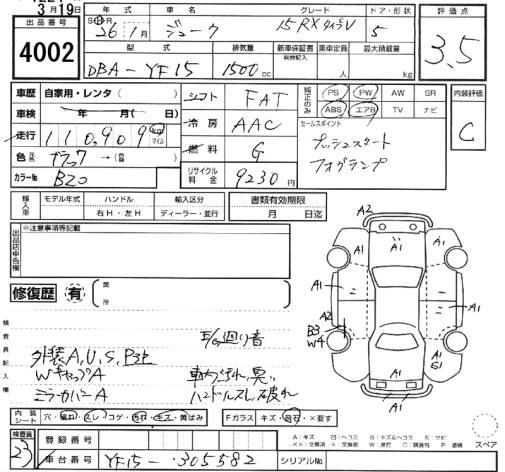 3月19日
出品番号 4002
年式 車名 グレード ドア・形状 評価点
SⒽR 26 1月 ジューク 15RX タイプV 5 3.5
型式 排気量 新車保証書 乗車定員 最大積載量
有側記入
DBA-YF15 1500cc 人 kg
車歴 自家用・レンタ( )
車検 年 月( 日)
走行 110,909 km マイル
色 元色 ブラック →(色替 )
カラーNo BZ0
シフト FAT
冷房 AAC
燃料 G
リサイクル料金 9230円
純正のみ PS PW AW SR
ABS エアB TV ナビ
セールスポイント
プッシュスタート
フォグランプ
内装評価 C
輸入車 モデル年式 ハンドル 輸入区分
右H・左H ディーラー・並行
書類有効期限
月 日迄
出品店申告欄 ※注意事項等記載
修復歴 有 箇所
検査員記入欄
外装A,U,S,P3上
WキャップA
ミラーカバーA
ハンドルスレ破れ
A2 A1 A1
A1 A1
A1 A1
A2
B3
W4 A1
A1 S1
A1
内装シート 穴・破れ・スレ・コゲ・汚れ・キズ・黄ばみ
Fガラス キズ・飛石・×要す
検査員 23
登録番号
車台番号 YF15-305582 シリアルNo.
A:キズ U:ヘコミ B:キズ&ヘコミ S:サビ
XX:交換済 X:要交換 W:波打 C:腐食有 P:塗装
スペア